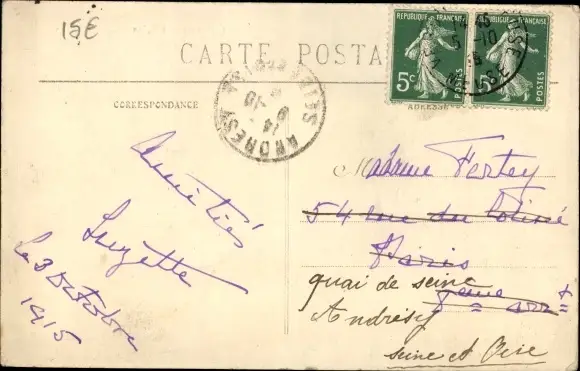 15€
CARTE POSTA
RÉPUBLIQUE FRANÇAISE
5c
POSTES
RÉPUBLIQUE FRANÇAISE
5c
POSTES
CORRESPONDANCE
ADRESSE
ANDRESY
Amitiés
Suzette
Le 3 Octobre
1915
Madame Fertey
54 rue du
Paris
quai de seine
Andrésy
seine et Oise